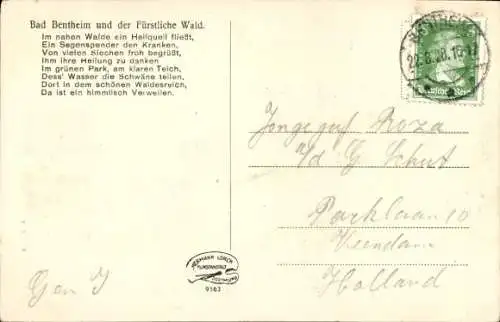 Bad Bentheim und der Fürstliche Wald.
Im nahen Walde ein Heilquell fließt,
Ein Segenspender den Kranken,
Von vielen Siechen froh begrüßt,
Ihm ihre Heilung zu danken
Im grünen Park, am klaren Teich,
Dess' Wasser die Schwäne teilen,
Dort in dem schönen Waldesreich,
Da ist ein himmlisch Verweilen.
BENTHEIM
22.8.28.15-17
Deutsches Reich
Roza
v/d G Schut
Parklaan 10
Veendam
Holland
HERMANN LORCH
KUNSTANSTALT
DORTMUND
9163
Gen I